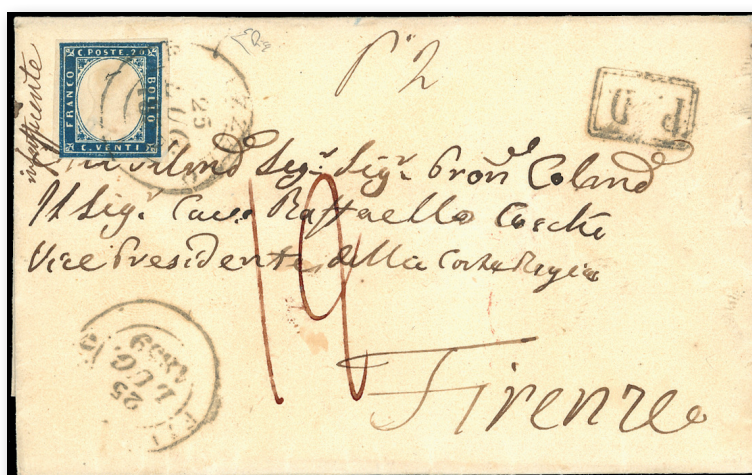 insufficiente
C. POSTE. 20
FRANCO
BOLLO
C. VENTI
25
LUG
P. D.
Sig.r Sig.r Pron Colmo
Il Sig.r Cav. Raffaello Cocchi
Vice Presidente della Corte Regia
19
Firenze
25
LUG
1859